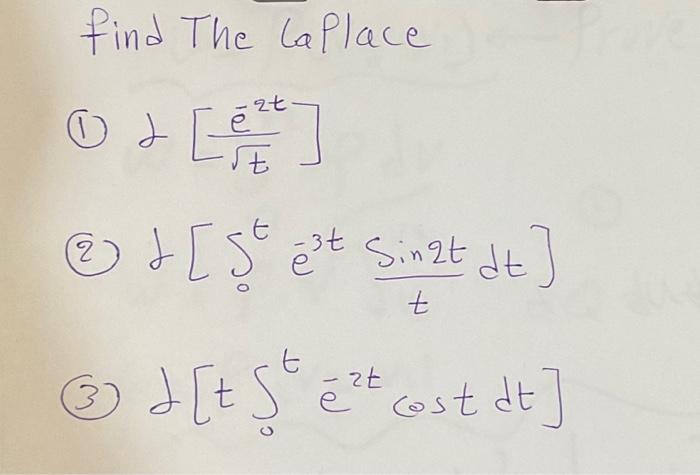 find The Laplace
① L [e^-2t / √t]
② L [∫₀^t e^-3t Sin2t / t dt]
③ L [t ∫₀^t e^-2t cost dt]